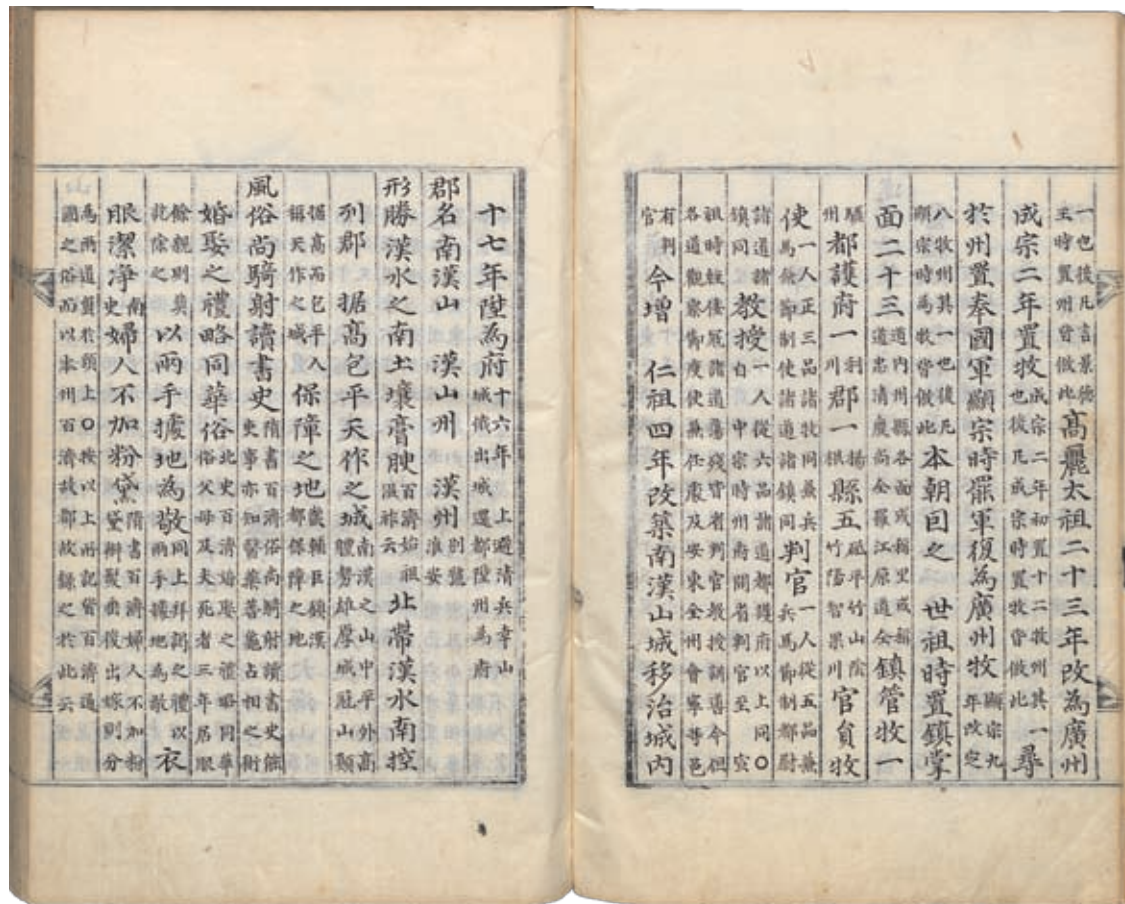 一也後凡言景德王時置州皆倣此高麗太祖二十三年改為廣州
成宗二年置牧成宗二年初置十二牧州其一也後凡成宗時置牧皆倣此尋
於州置奉國軍顯宗時罷軍復為廣州牧顯宗九年改定
八牧州其一也後凡顯宗時為牧皆倣此本朝因之 世祖時置鎮掌
面二十三道內州縣各面或稱里或稱道忠清慶尚全羅江原道仝鎮管牧一
驪州都護府一利川郡一楊根縣五砥平竹山陰竹陽智果川官員牧
使一人正三品諸牧同兼兵馬僉節制使諸道諸鎮同判官一人從五品兼兵馬節制都尉
諸道諸鎮同教授一人從六品諸道都護府以上同○自中宗時州府間省判官至宣
祖時經倭寇諸道蕩殘皆省判官教授訓導今但各道觀察節度使兼任處及安東全州會寧等邑
有判官今增 仁祖四年改築南漢山城移治城內
十七年陞為府十六年 上避清兵幸山城俄出城還都陞州為府
郡名南漢山 漢山州 漢州別號淮安
形勝漢水之南土壤膏腴百濟始祖溫祚云北帶漢水南控
列郡 據高包平天作之城南漢之山中平外高體勢雄厚城冠山顛
據高而包平人稱天作之城保障之地畿輔巨鎮漢都保障之地
風俗尚騎射讀書史隋書百濟俗尚騎射讀書史能吏事亦知醫藥蓍龜占相之術
婚娶之禮略同華俗北史百濟婚娶之禮略同華俗父母及夫死者三年居服
餘親則葬訖除之以兩手據地為敬同上拜謁之禮以兩手據地為敬衣
服潔淨南史婦人不加粉黛隋書百濟婦人不加粉黛辮髮垂後出嫁則分
為兩道盤於頭上○按以上所記皆百濟通國之俗而以本州百濟故都故錄之於此云